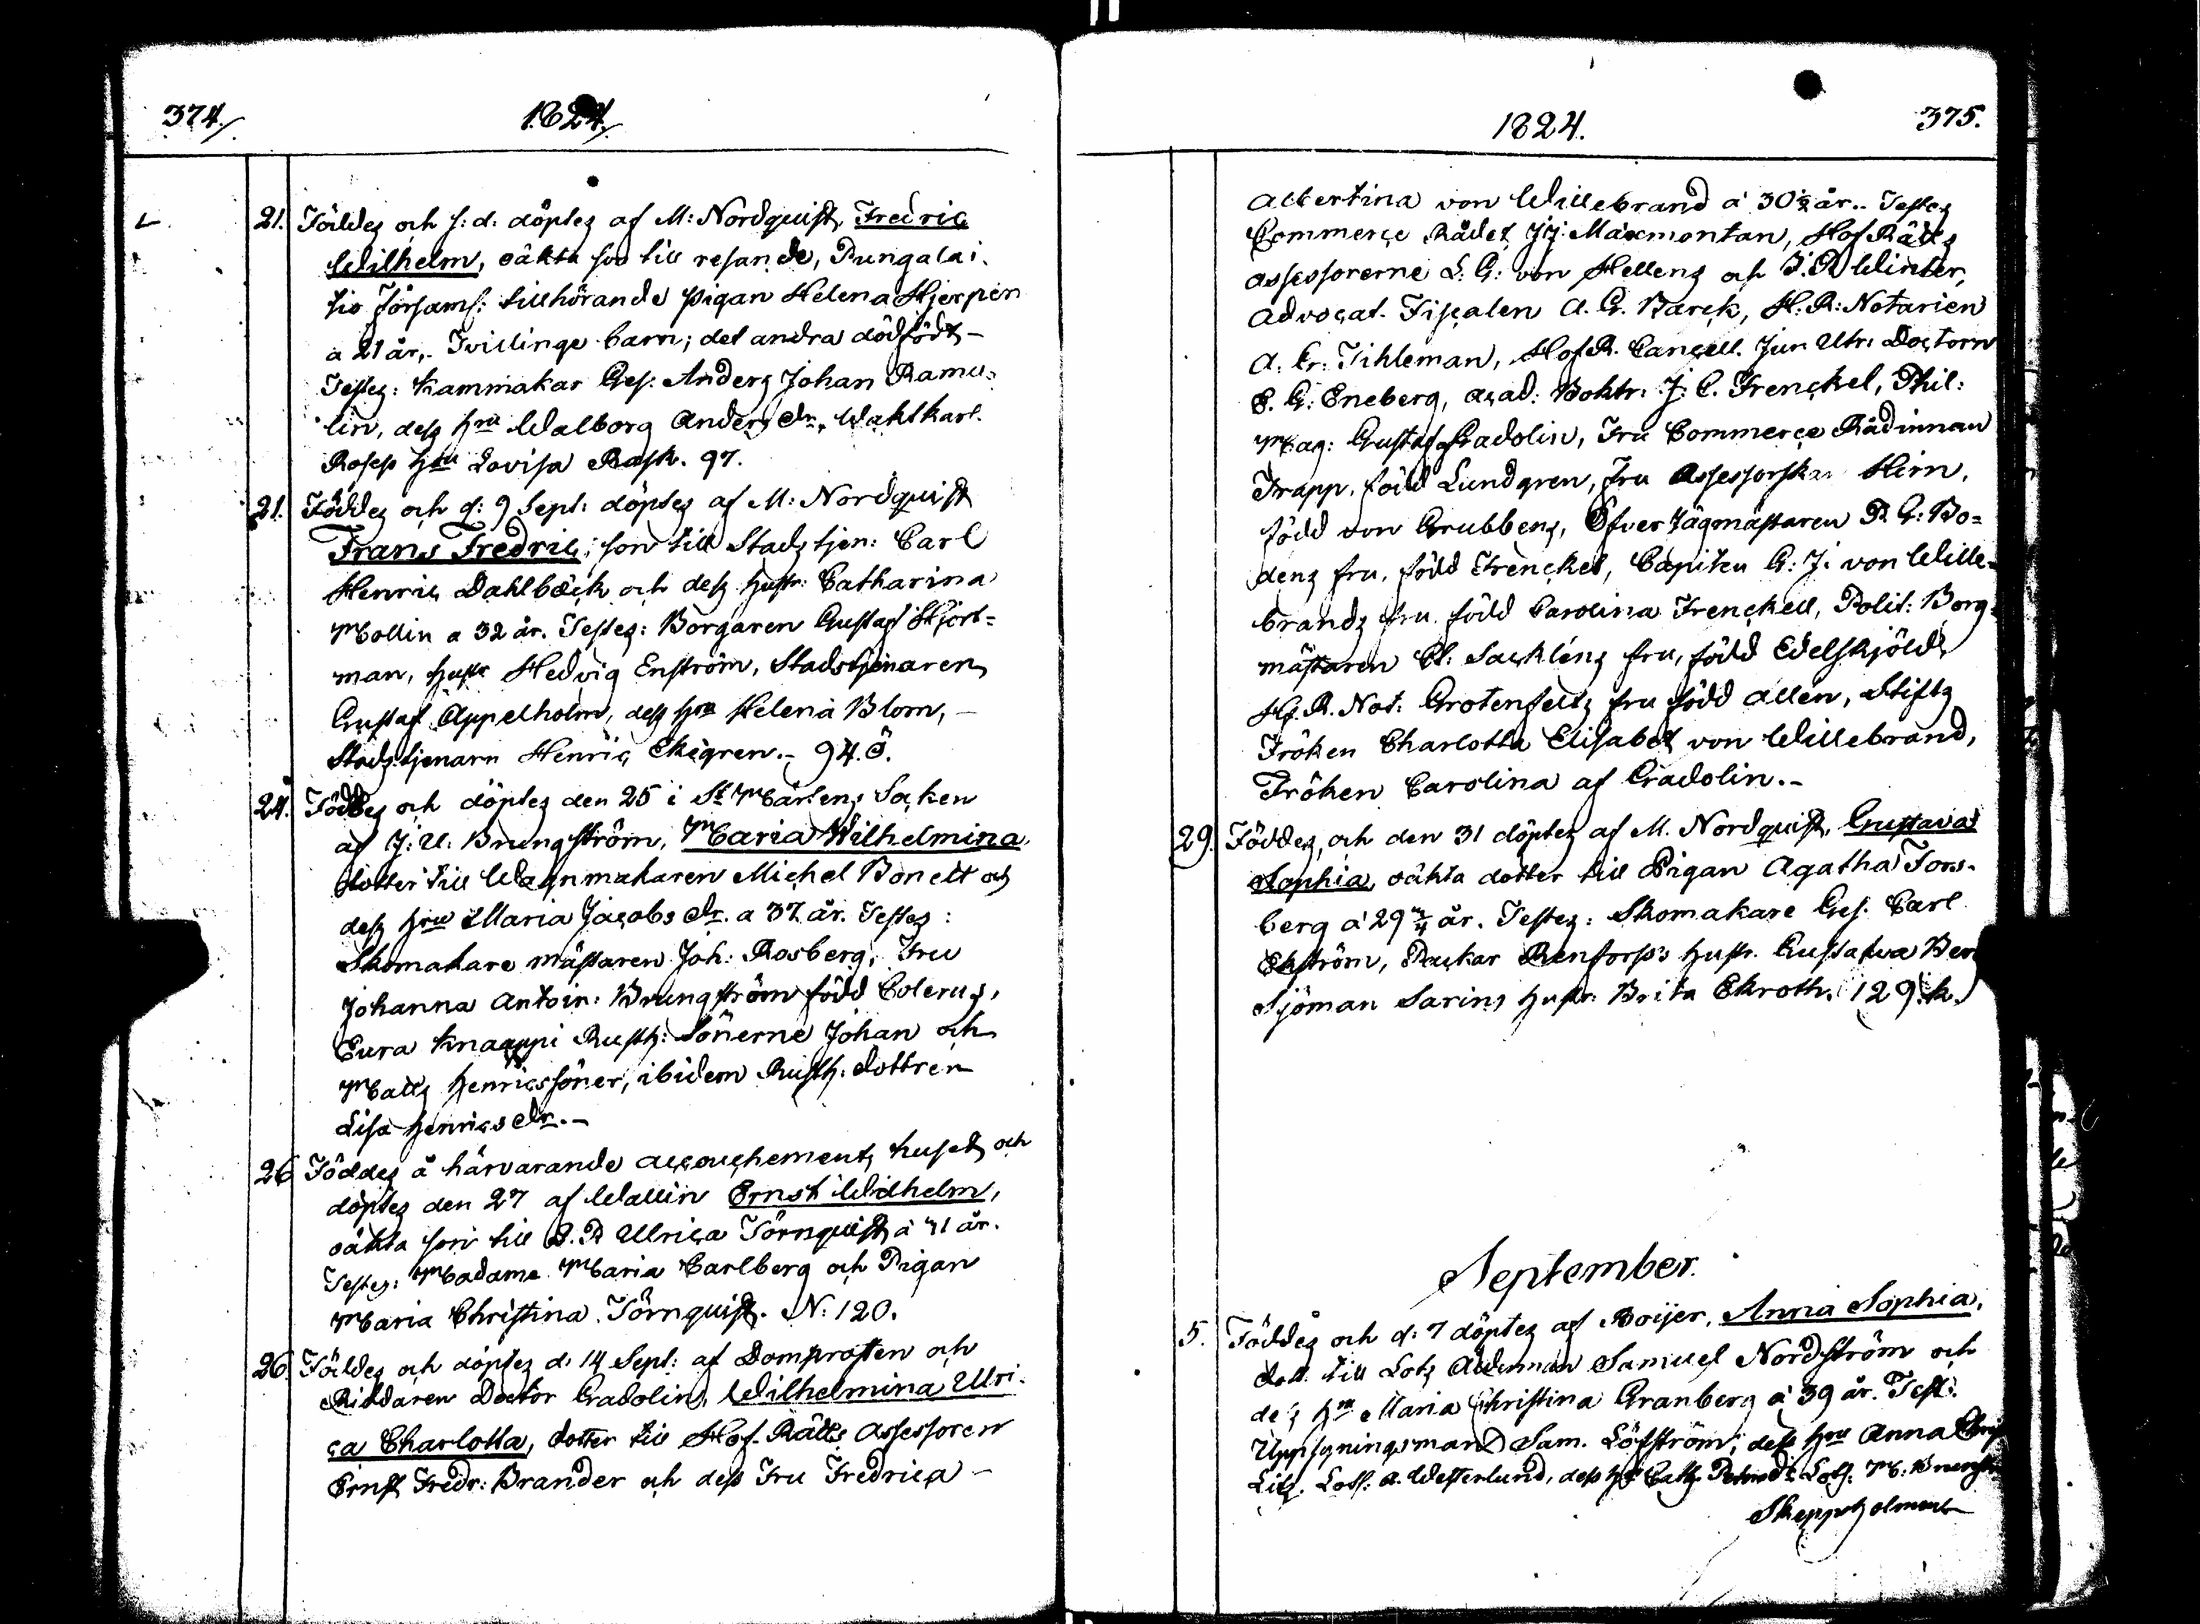 374.
1824.
21. Föddes och s: d: döptes af M: Nordquist, Fredric
Wilhelm, oäkta son till resande, Pungalai-
tio Församl: tillhörande pigan Helena Hjerpen
a 21 år,. Tvillinge barn; det andra dödfödt, -
Testes: Kammakar Ges: Anders Johan Ramu-
lin, dess hru Walborg Anders dr, Waktkarl
Roses hru Lovisa Rask. 97.
21. Föddes och d: 9 Sept: döptes af M: Nordquist
Frans Fredric, son till Stads tjen: Carl
Henric Dahlbäck och dess hustr: Catharina
Mollin a 32 år. Testes: Borgaren Gustaf Hjort-
man, hustr Hedvig Enström, Stadstjenaren
Gustaf Appelholm, dess hru Helena Blom, -
Stadstjenarn Henric Ekegren. - 94. Ö.
24. Föddes och döptes den 25 i St Mårtens Socken
af J: U: Brungström, Maria Wilhelmina
dotter till Wagnmakaren Michel Bonelt och
dess hru Maria Jacobs dr. a 37 år. Testes:
Skomakare mästaren Joh: Rosberg, Fru
Johanna Antoin: Brungström född Colerus,
Eura Knaappi Rusth: Sönerne Johan och
Matts Henricssöner, ibidem Rusth. dottren
Lisa Henrics dr. -
26. Föddes å härvarande Accouchements huset och
döptes den 27 af Wallin Ernst Wilhelm,
oäkta son till Ulrica Törnquist, a 41 år.
Testes: Madame Maria Carlberg och Pigan
Maria Christina Törnquist. N: 120.
26. Föddes och döptes d: 14 Sept: af Domprosten och
Riddaren Doctor Gadolin, Wilhelmina Ulri-
ca Charlotta, dotter till Hof-Rätts Assessoren
Ernst Fredr: Brander och dess Fru Fredrica -
1824.
375.
Albertina von Willebrand á 30½ år.. Testes
Commerce Rådet J J: Maxmontan, Hof Rätts
assessorerne L: G: von Hellens och Winter,
Advocat-Fiscalen A. G. Barck, H. R: Notarien
A. Fr: Tihleman, Hof R. Cancell. Jur. Utr. Doctorn
E. G: Eneberg, Acad: Boktr: J: C. Frenckel, Phil:
Mag: Gustaf Gadolin, Fru Commerce Rådinnan
Trapp, född Lundgren, Fru Assessorskan Hirn,
född von Grubbens, Öfver Jägmästaren P. G: Bo-
dens fru, född Frenckel, Capiten G: J: von Wille-
brands fru född Carolina Frenckell, Polit: Borg-
mästaren Cl: Sackléns fru, född Edelskjöld,
Hf. R. Not: Grotenfelts fru född Allén, Stifts
Fröken Charlotta Elisabet von Willebrand,
Fröken Carolina af Gadolin. -
29. Föddes, och den 31 döptes af M. Nordquist, Gustava
Sophia, oäkta dotter till Pigan Agatha Fors-
berg á 29¾ år. Testes: Skomakare Ges. Carl
Ekström, Packar Renfors's hustr. Gustafva Ber
Sjöman Sarins hustr: Brita Ekroth. 129. k.
September.
5. Föddes och d: 7 döptes af Boijer, Anna Sophia,
dott: till Lots Ålderman Samuel Nordström och
dess hru Maria Christina Granberg á 39 år. Test:
Uppsyningsman Sam. Löfström, dess hru Anna
Lots: A. Westerlund, dess Lots:
Skeppsholmen